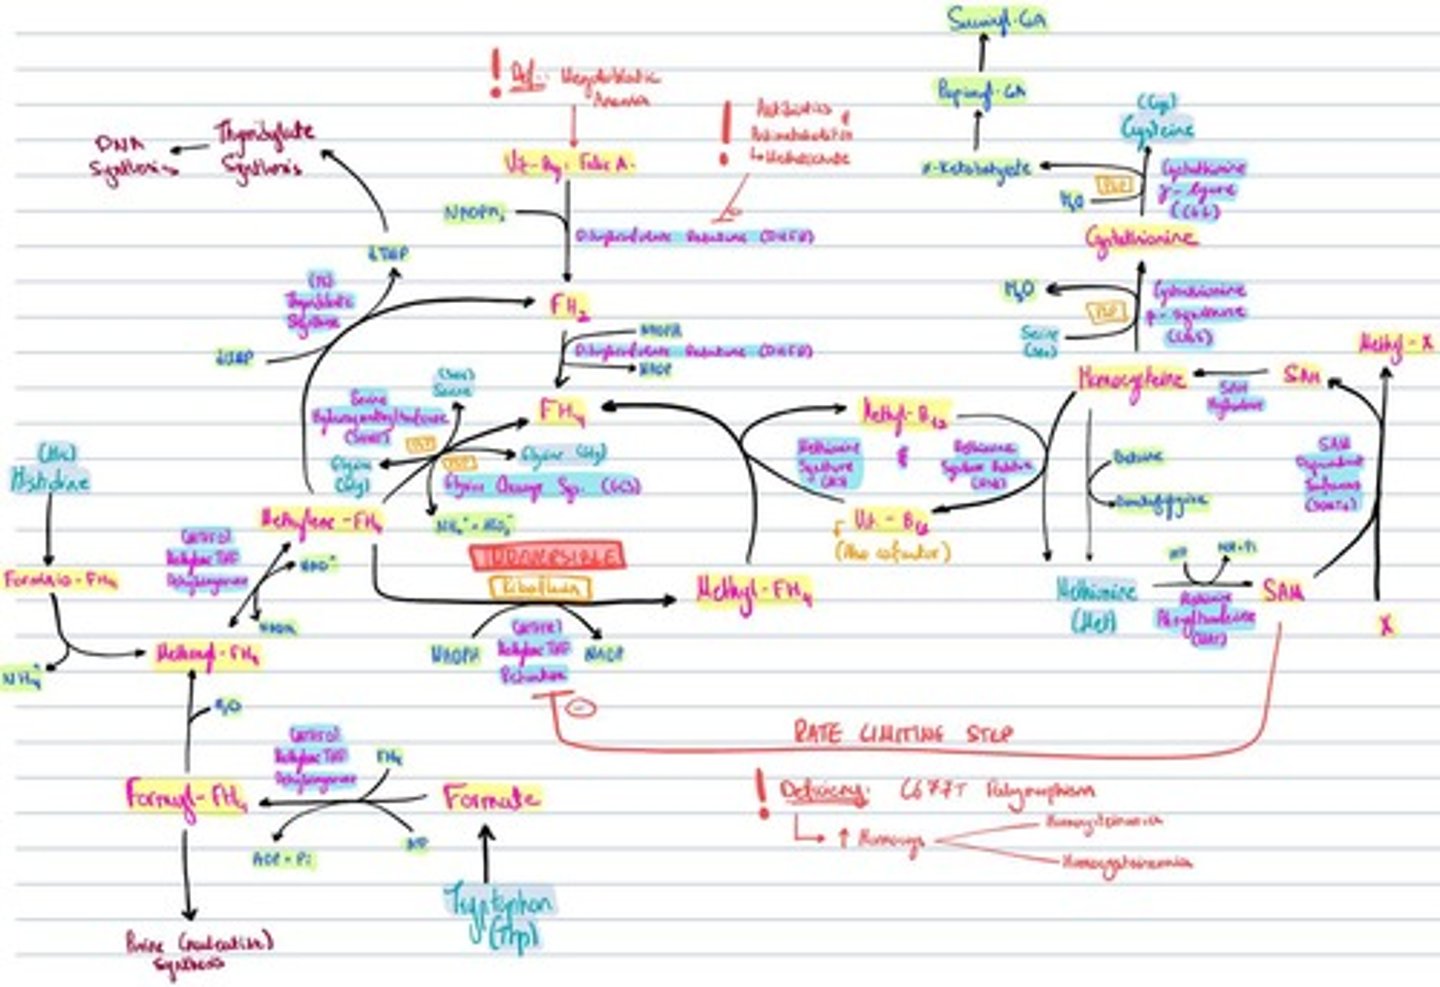 Succinyl-CoA
Propionyl-CoA
α-Ketobutyrate
(Cys)
Cysteine
H₂O
PLP
Cystathionine
γ-lyase
Cystathionine
H₂O
PLP
Serine
(Ser)
Cystathionine
β-synthase
(CBS)
! Def.: Megaloblastic
Anemia
! Antibiotics &
Antimetabolites
↳ Methotrexate
DNA
Synthesis
Thymidylate
Synthesis
Folic A.
NADPH
Dihydrofolate Reductase (DHFR)
dTMP
(TS)
Thymidylate
Synthase
dUMP
FH₂
NADPH
Dihydrofolate Reductase (DHFR)
NADP
(Ser)
Serine
Serine
Hydroxymethyltransferase
PLP
PLP
FH₄
Glycine (Gly)
Glycine
(Gly)
Glycine Cleavage Sys. (GCS)
Methylene-FH₄
Methyl-B₁₂
Methionine
Synthase
(MS)
&
Methionine
Synthase Reductase
Vit-B₁₂
(Also cofactor)
Homocysteine
SAH
Hydrolase
SAH
Methyl-X
SAM
Dependent
Betaine
Dimethylglycine
Methionine
(Met)
ATP
SAM
X
(His)
Histidine
Formimino-FH₄
NH₄⁺
Methenyl-FH₄
Methylene THF
Dehydrogenase
IRREVERSIBLE
Riboflavin
NADPH
NADP
Methylene THF
Reductase
Methyl-FH₄
H₂O
RATE LIMITING STEP
Methylene THF
Dehydrogenase
FH₄
Formyl-FH₄
Formate
ADP + Pi
ATP
Tryptophan
(Trp)
Synthesis
! Deficiency: C677T Polymorphism
↑ Homocys
Homocysteinemia